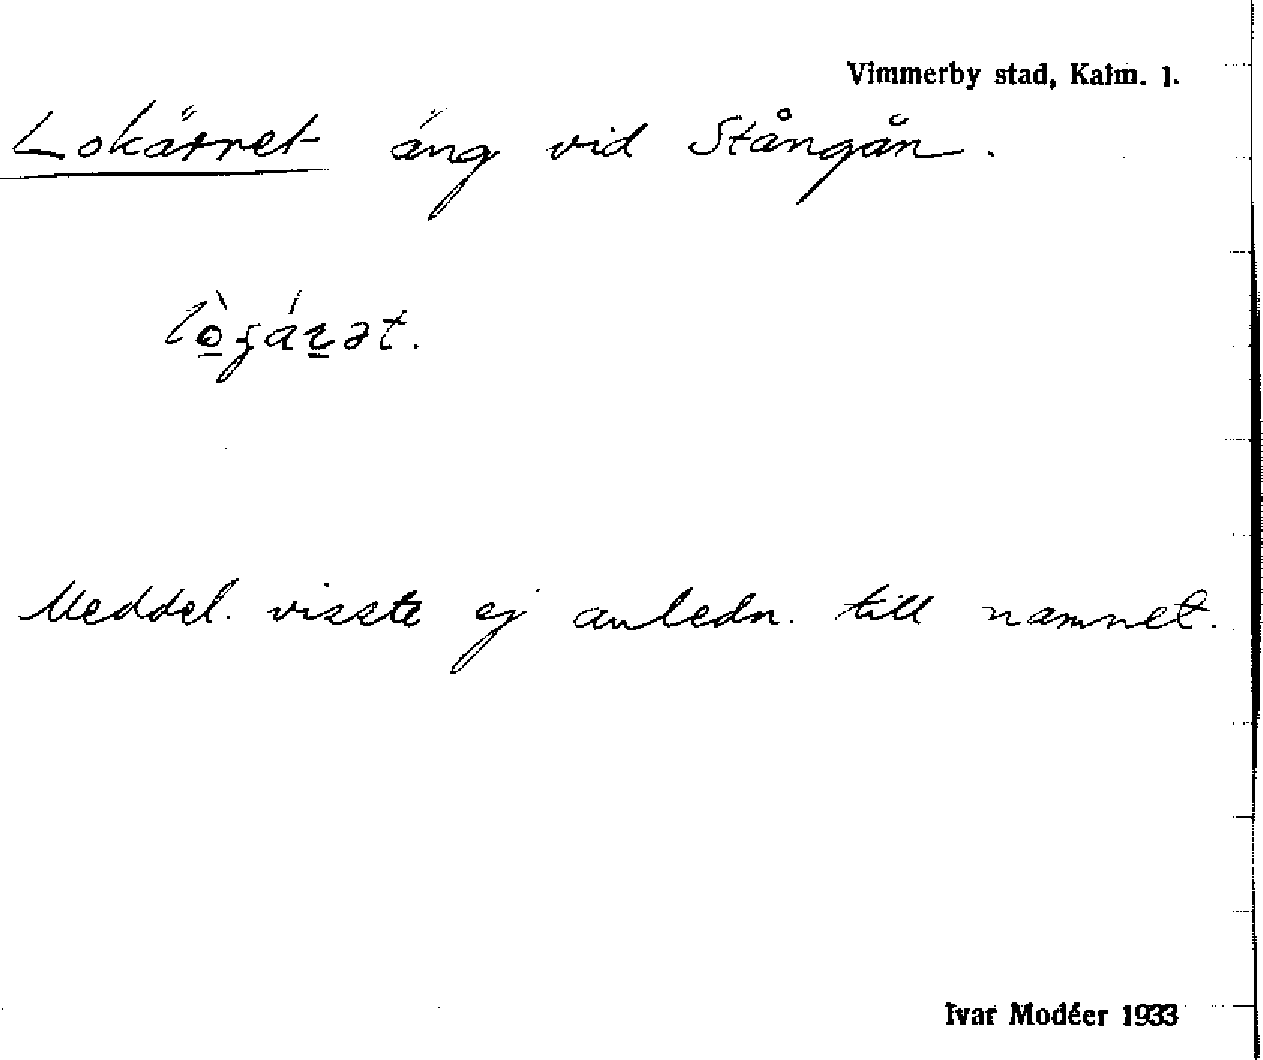 Vimmerby stad, Kalm. 1.
Lokärret äng vid Stångån.
Meddel. visste ej anledn. till namnet.
Ivar Modéer 1933